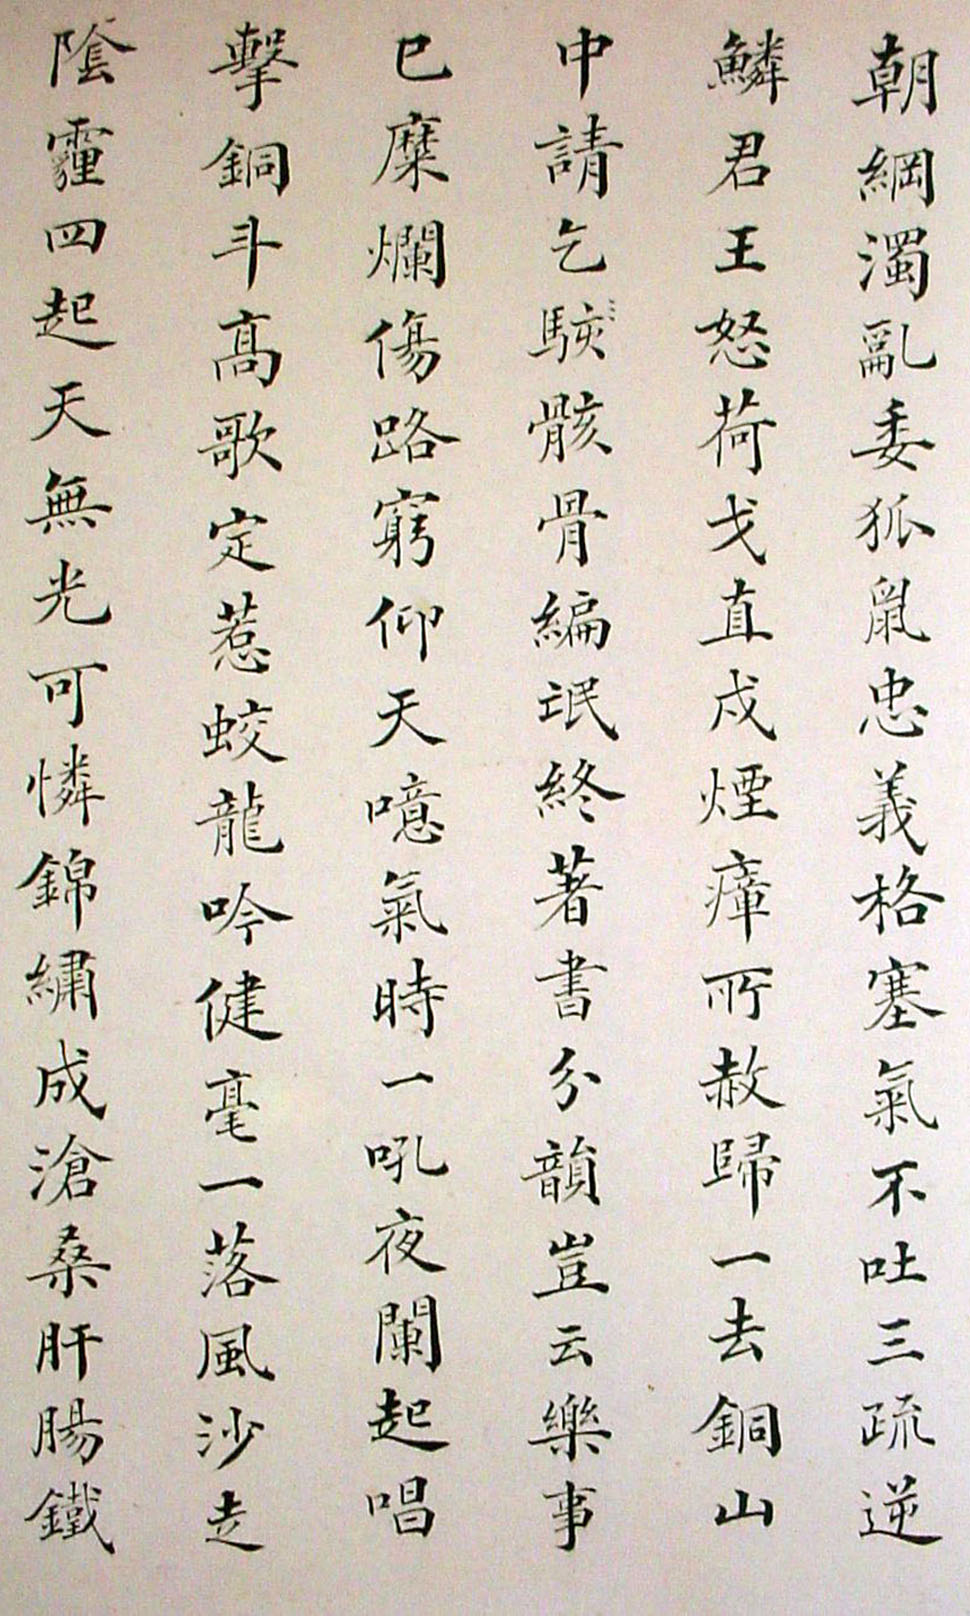 朝綱濁亂委狐鼠忠義格塞氣不吐三疏逆
鱗君王怒荷戈直戍煙瘴所赦歸一去銅山
中請乞駭骸骨編氓終著書分韻豈云樂事
已糜爛傷路窮仰天噫氣時一吼夜闌起唱
擊銅斗高歌定惹蛟龍吟健毫一落風沙走
陰霾四起天無光可憐錦繡成滄桑肝腸鐵